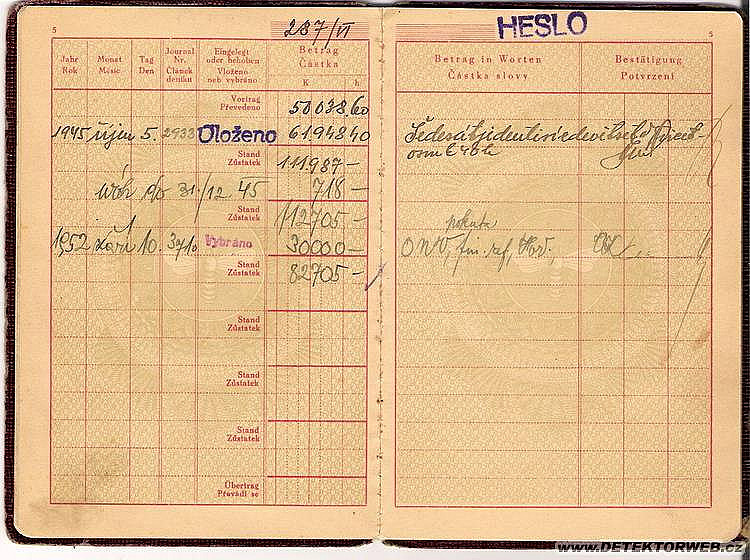 5 287/VI
Jahr Rok Monat Měsíc Tag Den Journal Nr. Článek deníku Eingelegt oder behoben Vloženo neb vybráno Betrag Částka K h
Vortrag Převedeno 50.038,60
1945 říjen 5. 2933 Uloženo 61948 40
Stand Zůstatek 111.987 —
úrok do 31./12. 45 718 —
Stand Zůstatek 112705 —
1952 září 10. Vybráno 30000 —
Stand Zůstatek 82705 —
Stand Zůstatek
Stand Zůstatek
Stand Zůstatek
Übertrag Převádí se
HESLO
5
Betrag in Worten Částka slovy Bestätigung Potvrzení
Šedesátjedentisícdevětset
osm
pokuta
ONV, fin. ref.
www.DETEKTORWEB.cz